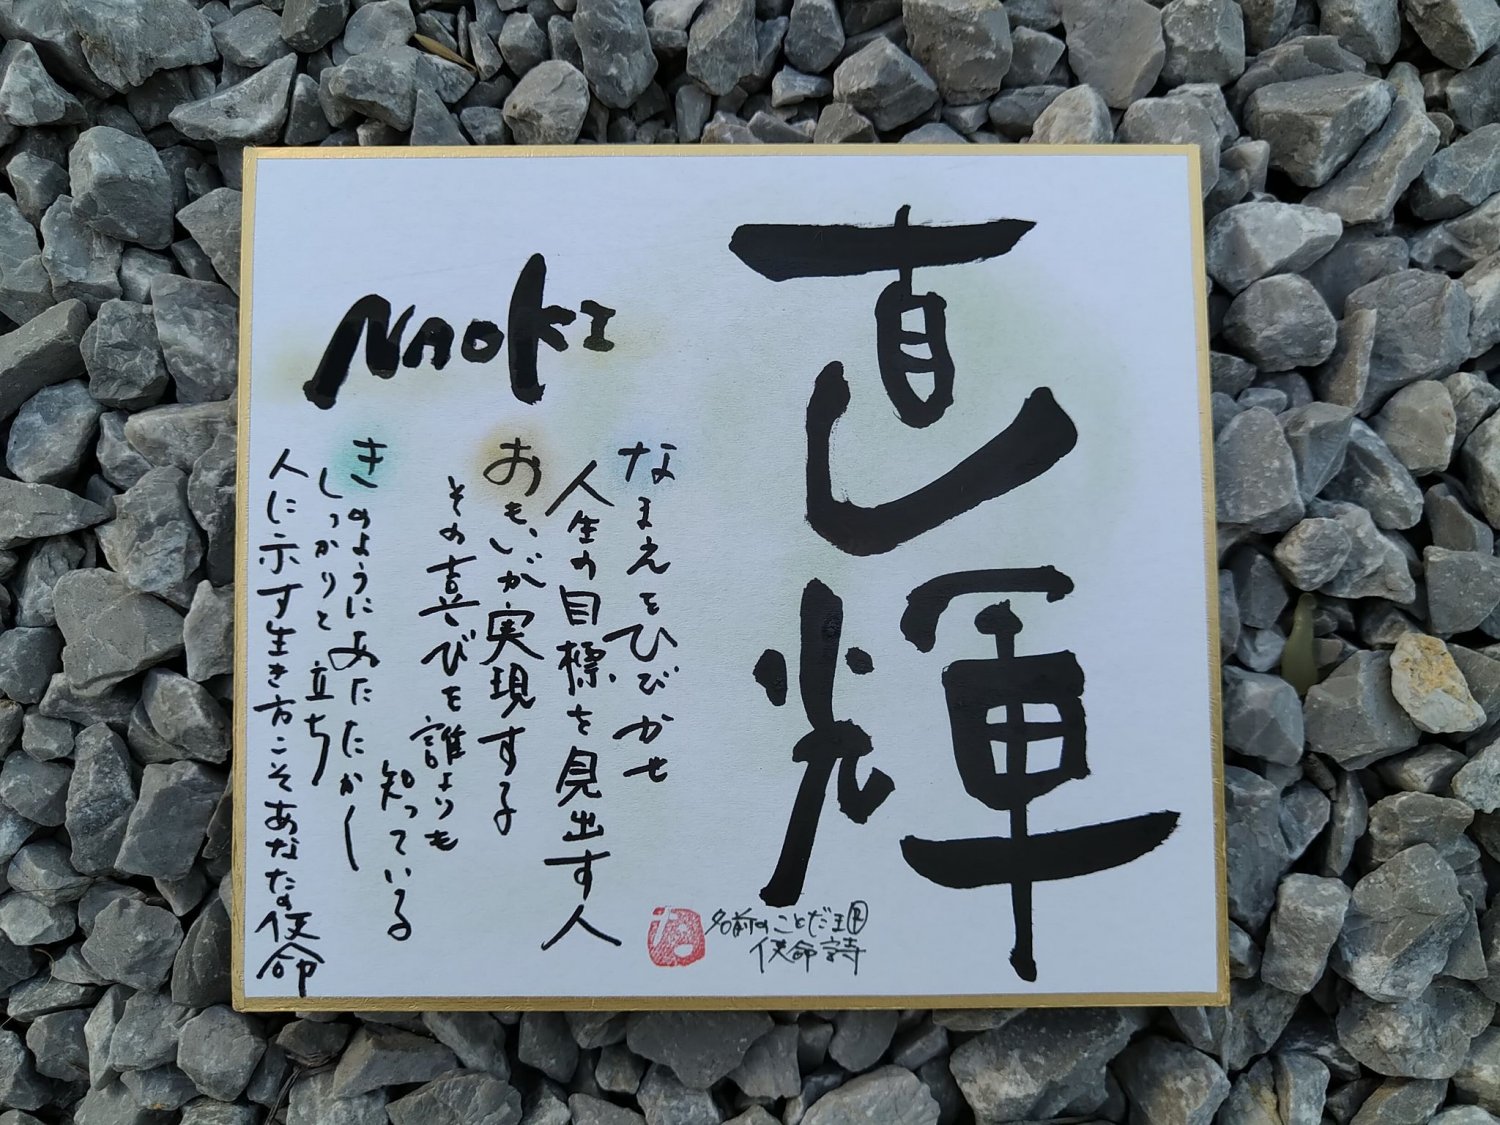 直輝
Naoki
なまえをひびかせ
人生の目標を見出す人
おもいが実現する
その喜びを誰よりも
知っている
きのようにあたたかく
しっかりと立ち
人に示す生き方こそあなたの使命
名前のことだま
使命詩